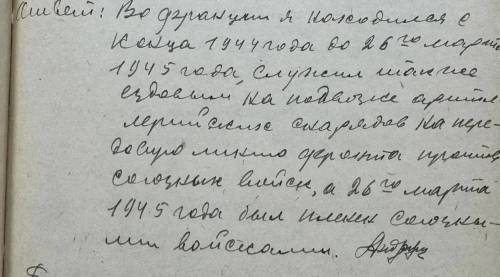 Ответ: Во франции я находился с
конца 1944 года до 26го марта
1945 года, служил также
ездовым на подвозке артил
лерийских снарядов на пере-
довую линию фронта против
союзных войск, а 26го марта
1945 года был пленен союзны-
ми войсками.